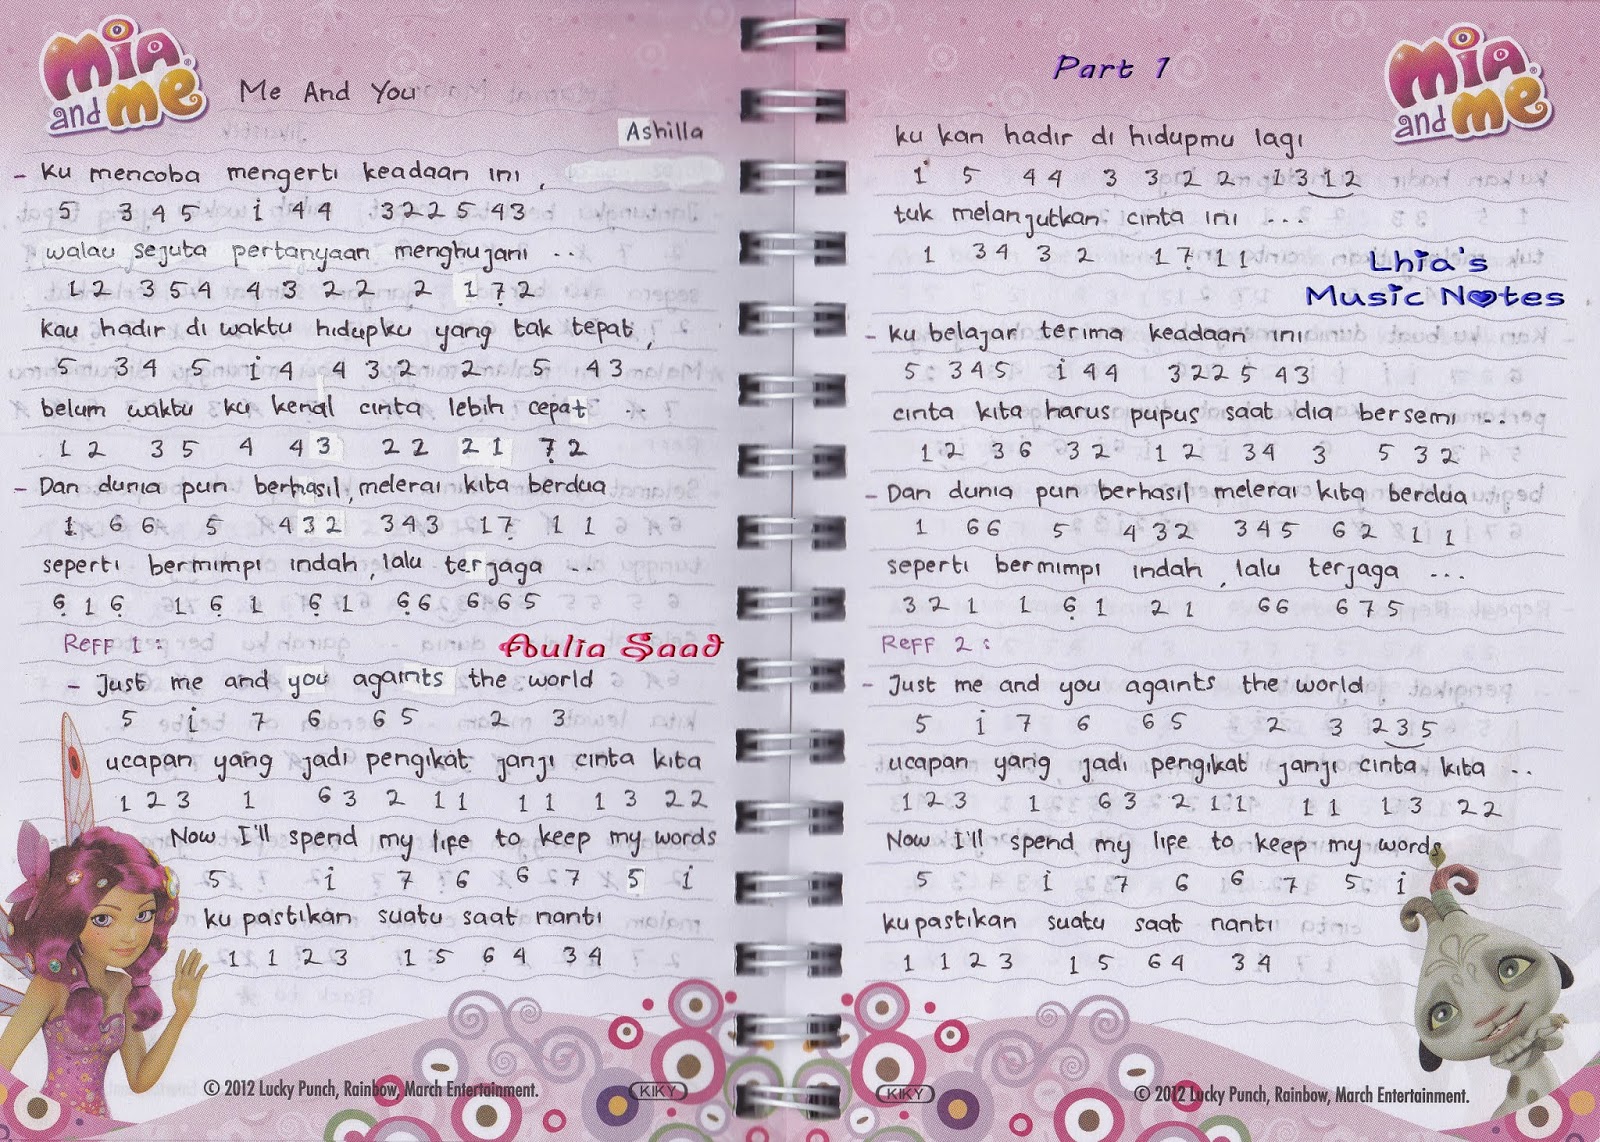 mia and me
Me And You
Ashilla
- Ku mencoba mengerti keadaan ini ,
5 3 4 5 i 4 4 3 2 2 5 4 3
walau sejuta pertanyaan menghujani . .
1 2 3 5 4 4 3 2 2 2 1 7̣ 2
kau hadir di waktu hidupku yang tak tepat ,
5 3 4 5 i 4 4 3 2 2 5 4 3
belum waktu ku kenal cinta lebih cepat . .
1 2 3 5 4 4 3 2 2 2 1 7̣ 2
- Dan dunia pun berhasil, melerai kita berdua
1 6 6 5 4 3 2 3 4 3 1 7̣ 1 1
seperti bermimpi indah , lalu terjaga . .
6̣ 1 6̣ 1 6̣ 1 6̣ 1 6̣ 6 6 6 5
Reff 1 :
Aulia Saad
- Just me and you againts the world
5 i 7 6 6 5 2 3
ucapan yang jadi pengikat janji cinta kita
1 2 3 1 6 3 2 1 1 1 1 1 3 2 2
Now I'll spend my life to keep my words
5 i 7 6 6 7 5 i
ku pastikan suatu saat nanti
1 1 2 3 1 5 6 4 3 4
© 2012 Lucky Punch, Rainbow, March Entertainment.
KIKY
Part 1
mia and me
ku kan hadir di hidupmu lagi
i 5 4 4 3 3 2 2 1 3 1 2
tuk melanjutkan cinta ini . . .
1 3 4 3 2 1 7̣ 1 1
Lhia's
Music Notes
- Ku belajar terima keadaan ini
5 3 4 5 i 4 4 3 2 2 5 4 3
cinta kita harus pupus saat dia bersemi . .
1 2 3 6 3 2 1 2 3 4 3 5 3 2
- Dan dunia pun berhasil melerai kita berdua
1 6 6 5 4 3 2 3 4 5 6 2 1 1
seperti bermimpi indah , lalu terjaga . . .
3 2 1 1 6̣ 1 2 1 6 6 6 7 5
Reff 2 :
- Just me and you againts the world
5 i 7 6 6 5 2 3 2 3 5
ucapan yang jadi pengikat janji cinta kita . .
1 2 3 1 6 3 2 1 1 1 1 1 3 2 2
Now I'll spend my life to keep my words
5 i 7 6 6 7 5 i
ku pastikan suatu saat nanti
1 1 2 3 1 5 6 4 3 4
KIKY
© 2012 Lucky Punch, Rainbow, March Entertainment.